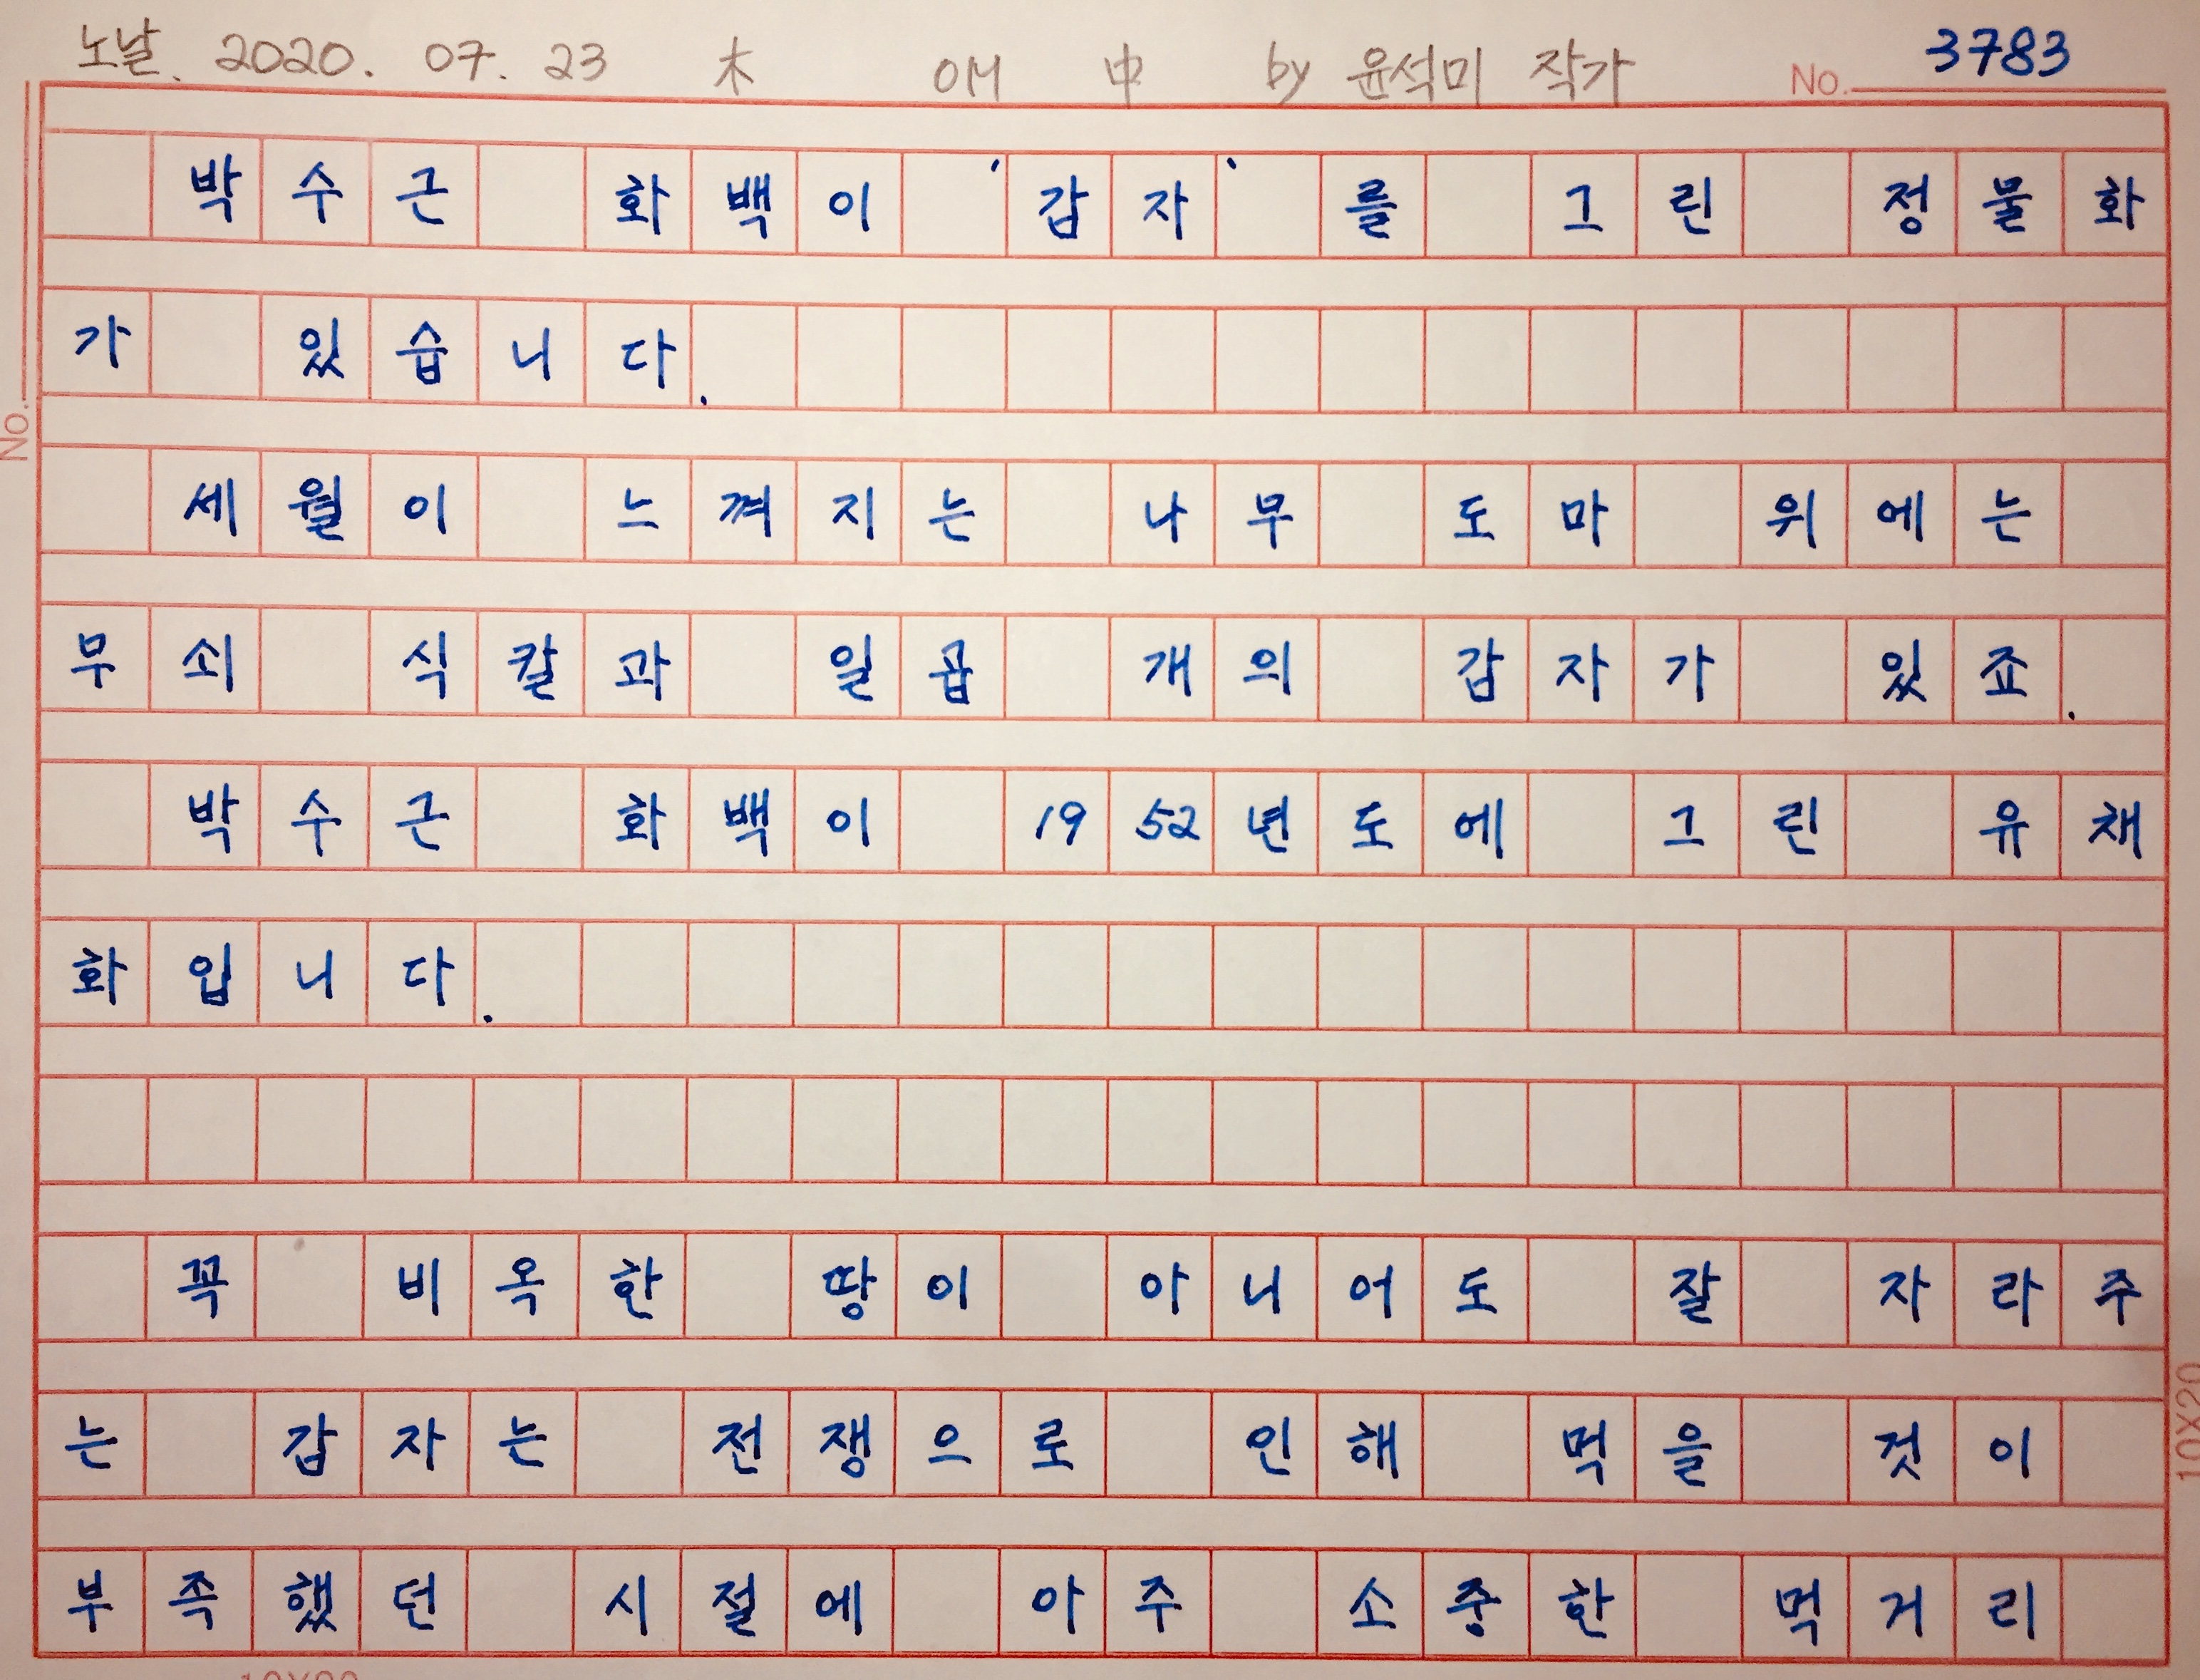 노날. 2020. 07. 23 木 OM 中 by 윤석미 작가 No. 3783
박수근 화백이 '감자'를 그린 정물화
가 있습니다.
세월이 느껴지는 나무 도마 위에는
무쇠 식칼과 일곱 개의 감자가 있죠.
박수근 화백이 1952년도에 그린 유채
화입니다.
꼭 비옥한 땅이 아니어도 잘 자라주
는 감자는 전쟁으로 인해 먹을 것이
부족했던 시절에 아주 소중한 먹거리
No.
10X20